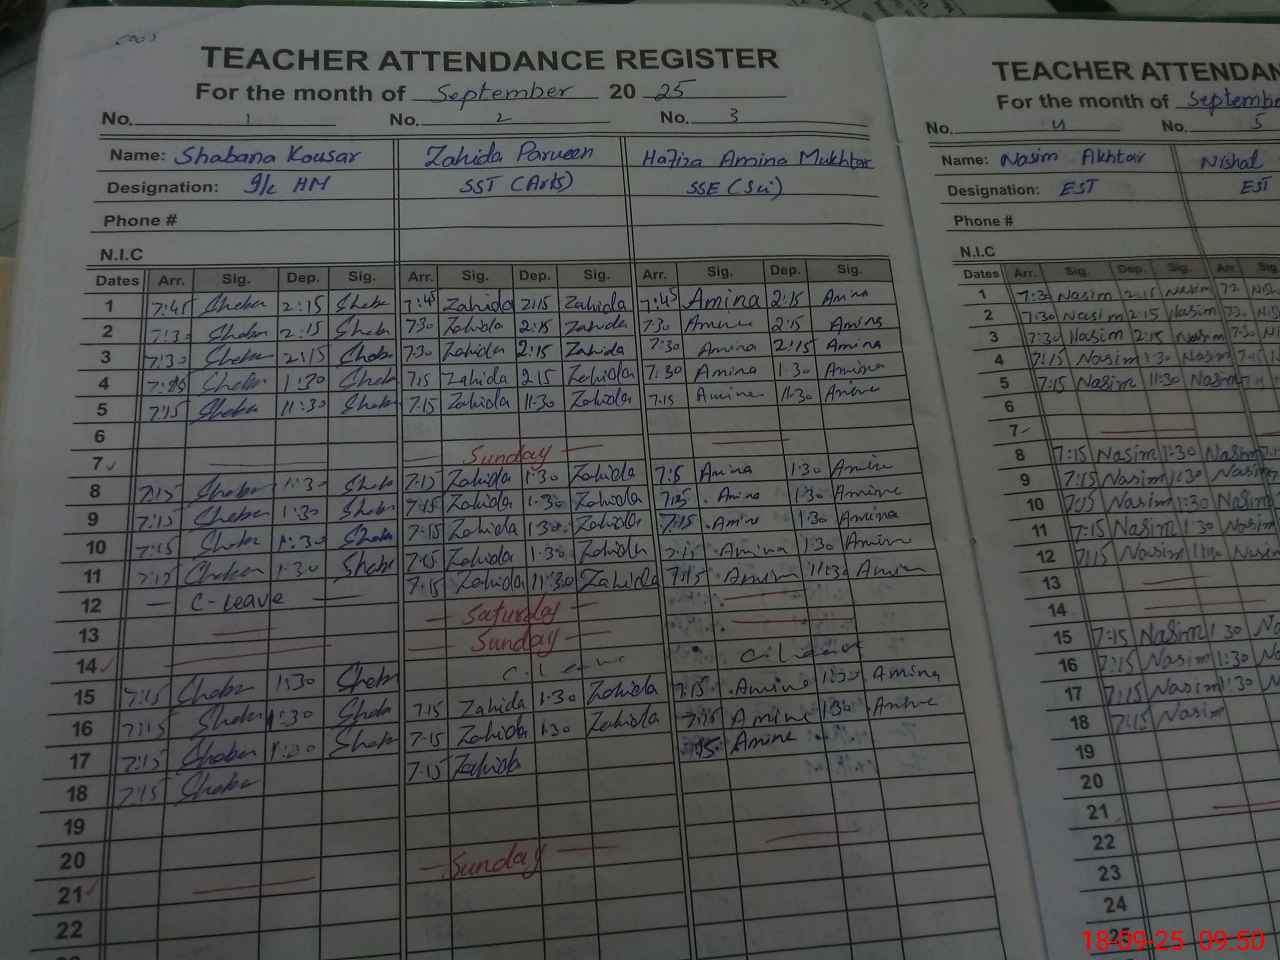 TEACHER ATTENDANCE REGISTER
For the month of September 20 25
No. 1 No. 2 No. 3
Name: Shabana Kousar Zahida Parveen Hafiza Amina Mukhtar
Designation: I/c HM SST (Arts) SSE (Sci)
Phone #
N.I.C
Dates Arr. Sig. Dep. Sig. Arr. Sig. Dep. Sig. Arr. Sig. Dep. Sig.
1 7:45 Sheba 2:15 Sheba 7:45 Zahida 2:15 Zahida 7:45 Amina 2:15 Amina
2 7:30 Sheba 2:15 Sheba 7:30 Zahida 2:15 Zahida 7:30 Amina 2:15 Amina
3 7:30 Sheba 2:15 Sheba 7:30 Zahida 2:15 Zahida 7:30 Amina 2:15 Amina
4 Sheba 1:30 Sheba 7:15 Zahida 2:15 Zahida 7:30 Amina 1:30 Amina
5 7:15 Sheba 11:30 Sheba 7:15 Zahida 11:30 Zahida 7:15 Amina 11:30 Amina
6
7 Sunday
8 7:15 Sheba 1:30 Sheba 7:15 Zahida 1:30 Zahida Amina 1:30 Amina
9 7:15 Sheba 1:30 Sheba 7:15 Zahida 1:30 Zahida 7:15 Amina 1:30 Amina
10 7:15 Sheba 1:30 Sheba 7:15 Zahida 1:30 Zahida 7:15 Amina 1:30 Amina
11 7:15 Sheba 1:30 Sheba 7:15 Zahida 1:30 Zahida 7:15 Amina 1:30 Amina
12 C-Leave 7:15 Zahida 11:30 Zahida 7:15 Amina 11:30 Amina
13 Saturday
14 Sunday
15 7:15 Sheba 1:30 Sheba C. Leave C. Leave
16 7:15 Sheba 1:30 Sheba 7:15 Zahida 1:30 Zahida 7:15 Amina 1:30 Amina
17 7:15 Sheba 1:30 Sheba 7:15 Zahida 1:30 Zahida 7:15 Amina 1:30 Amina
18 7:15 Sheba 7:15 Zahida Amina
19
20
21 Sunday
22
TEACHER ATTENDAN
For the month of Septembe
No. 4 No. 5
Name: Nasim Akhtar Nishat
Designation: EST EST
Phone #
N.I.C
Dates Arr. Sig. Dep. Sig. Arr. Sig.
1 7:30 Nasim 2:15 Nasim
2 7:30 Nasim 2:15 Nasim
3 7:30 Nasim 2:15 Nasim
4 7:15 Nasim 1:30 Nasim
5 7:15 Nasim 11:30 Nasim
6
7
8 7:15 Nasim 1:30 Nasim
9 7:15 Nasim 1:30 Nasim
10 7:15 Nasim 1:30 Nasim
11 7:15 Nasim 1:30 Nasim
12 7:15 Nasim Nasim
13
14
15 7:15 Nasim 1:30
16 7:15 Nasim 1:30
17 7:15 Nasim 1:30
18 7:15 Nasim
19
20
21
22
23
24
25
18-09-25 09:50